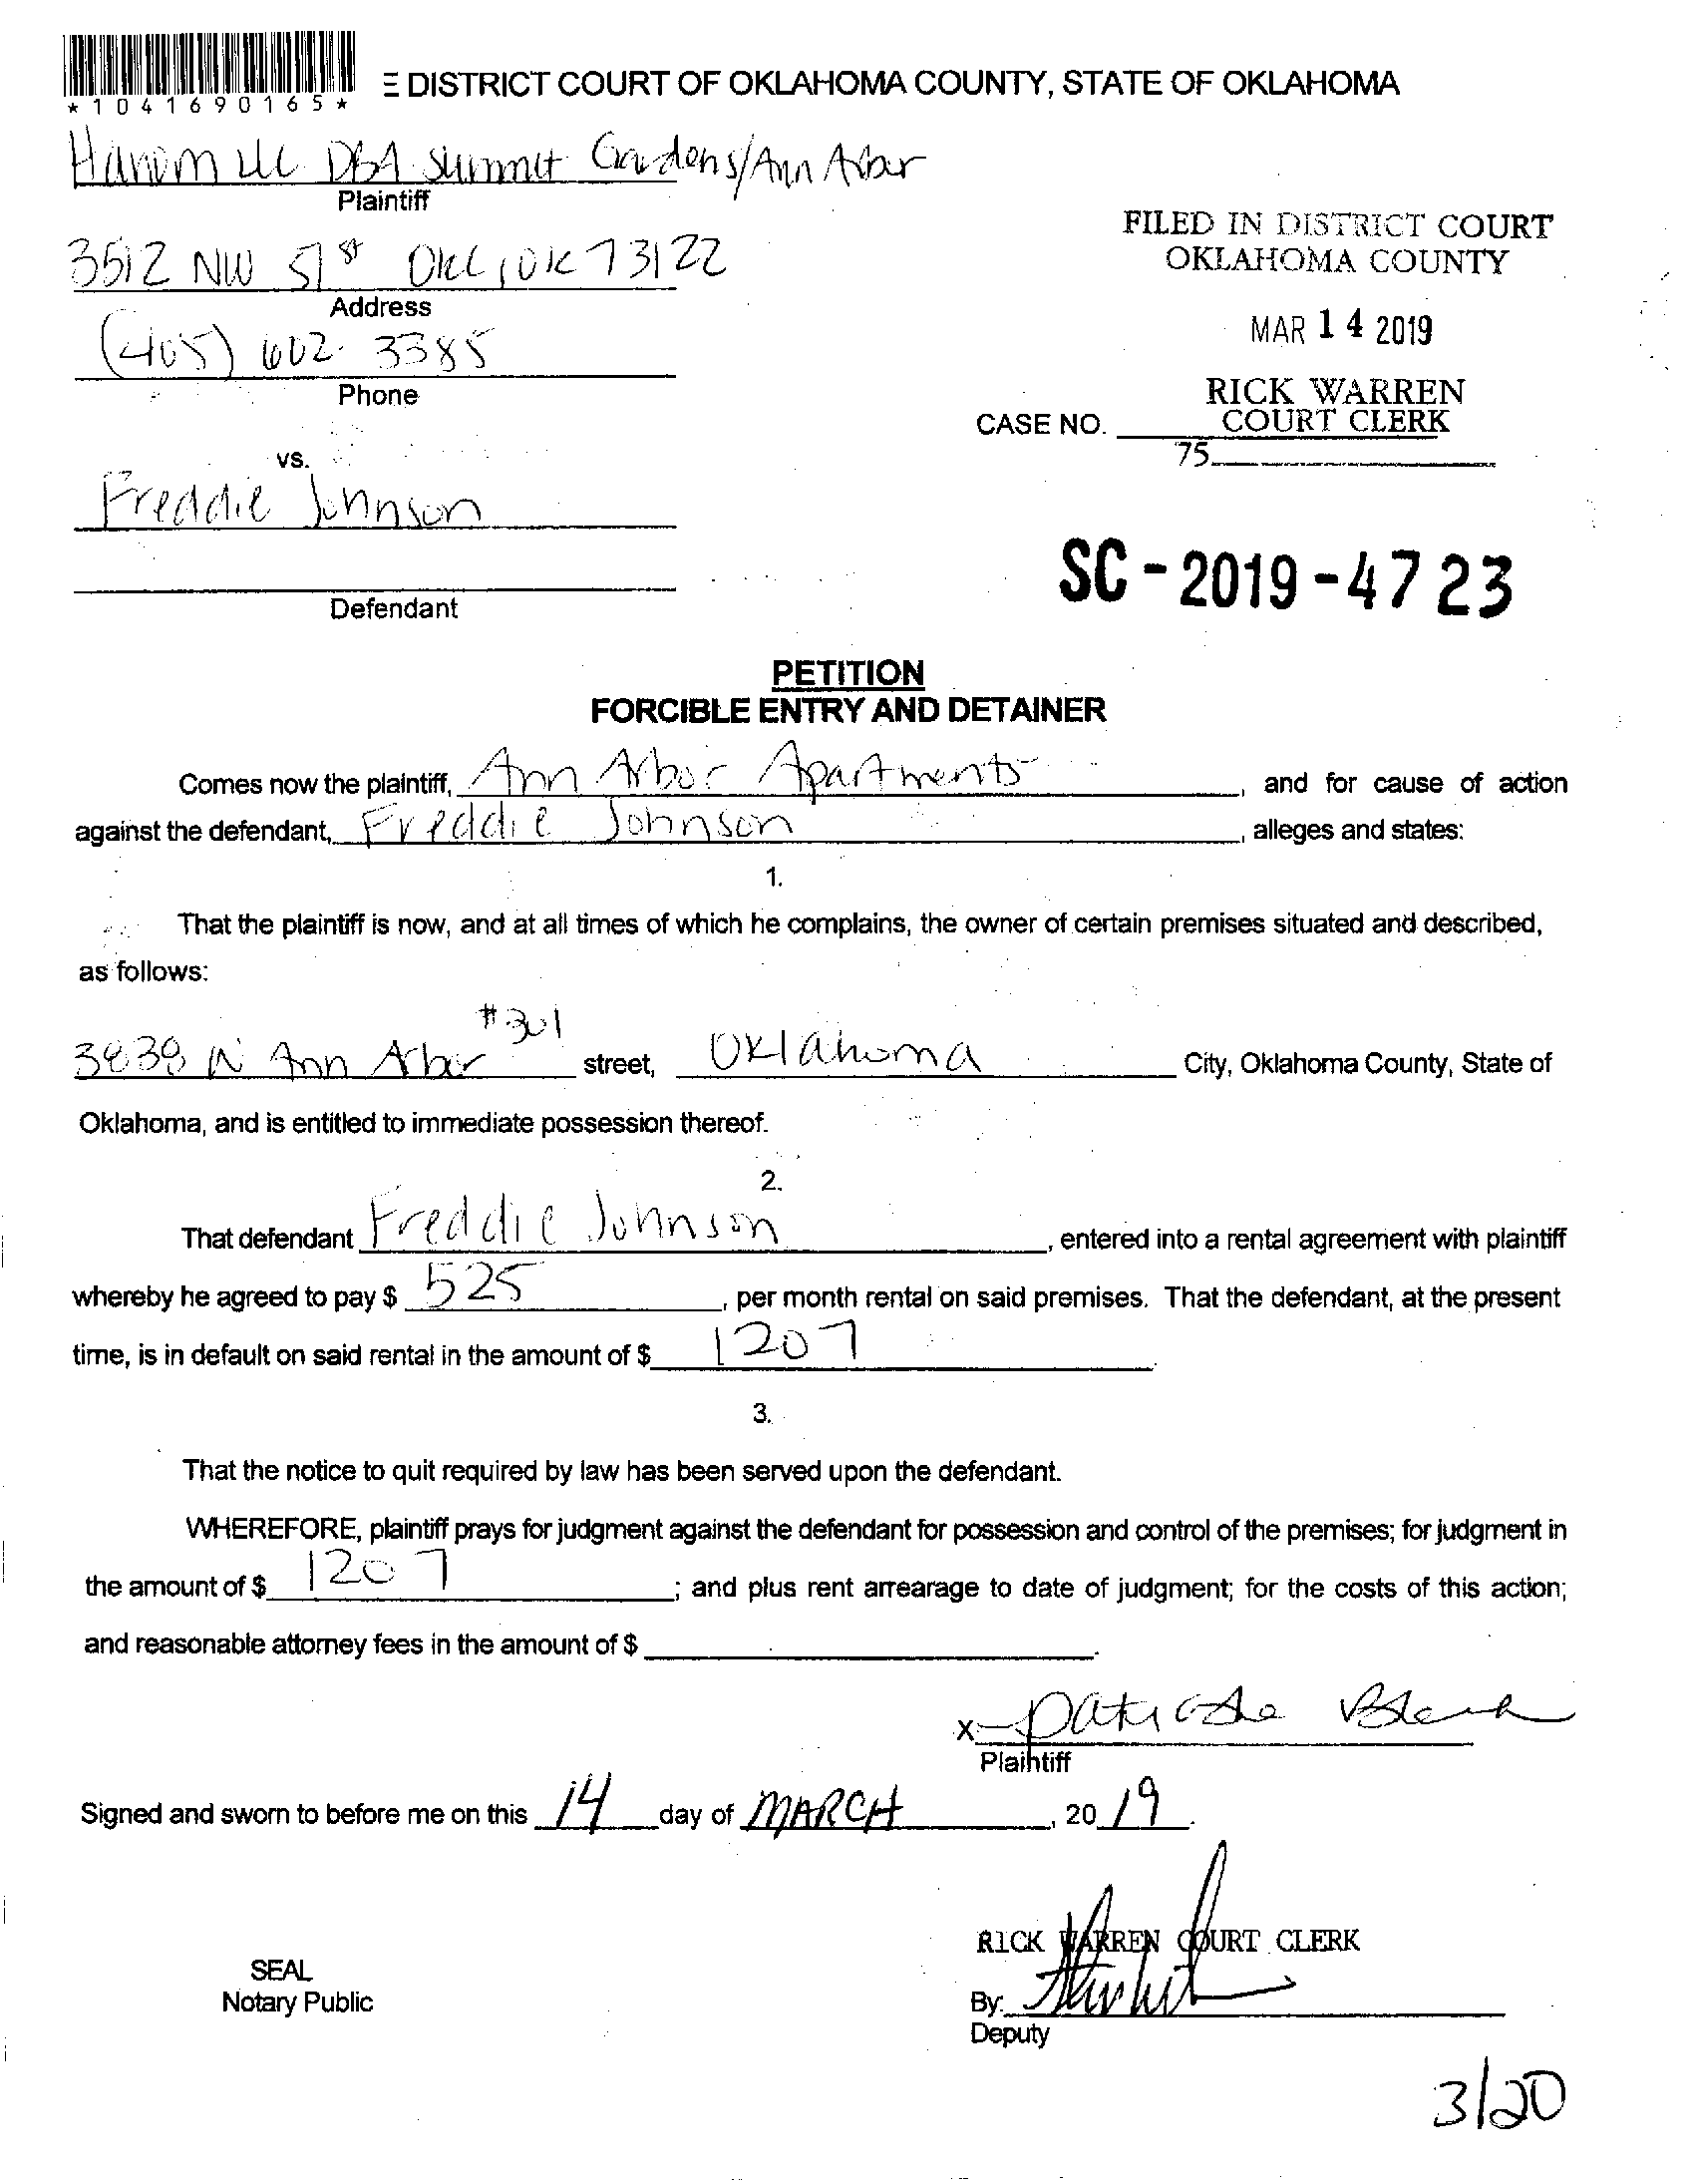 *1041690165*
E DISTRICT COURT OF OKLAHOMA COUNTY, STATE OF OKLAHOMA
LLC DBA Summit Gardens/Ann Arbor
Plaintiff
3512 NW 51st OKC, OK 73122
Address
(405) 602-3385
Phone
FILED IN DISTRICT COURT
OKLAHOMA COUNTY
MAR 14 2019
RICK WARREN
COURT CLERK
CASE NO.
75
vs.
Freddie Johnson
SC-2019-4723
Defendant
PETITION
FORCIBLE ENTRY AND DETAINER
Comes now the plaintiff, Ann Arbor Apartments, and for cause of action
against the defendant, Freddie Johnson, alleges and states:
1.
That the plaintiff is now, and at all times of which he complains, the owner of certain premises situated and described,
as follows:
3838 N Ann Arbor #301 street, Oklahoma City, Oklahoma County, State of
Oklahoma, and is entitled to immediate possession thereof.
2.
That defendant Freddie Johnson, entered into a rental agreement with plaintiff
whereby he agreed to pay $ 525, per month rental on said premises. That the defendant, at the present
time, is in default on said rental in the amount of $ 1207.
3.
That the notice to quit required by law has been served upon the defendant.
WHEREFORE, plaintiff prays for judgment against the defendant for possession and control of the premises; for judgment in
the amount of $ 1207; and plus rent arrearage to date of judgment; for the costs of this action;
and reasonable attorney fees in the amount of $ .
x
Plaintiff
Signed and sworn to before me on this 14 day of MARCH, 2019.
RICK WARREN COURT CLERK
SEAL
Notary Public
By:
Deputy
3/20